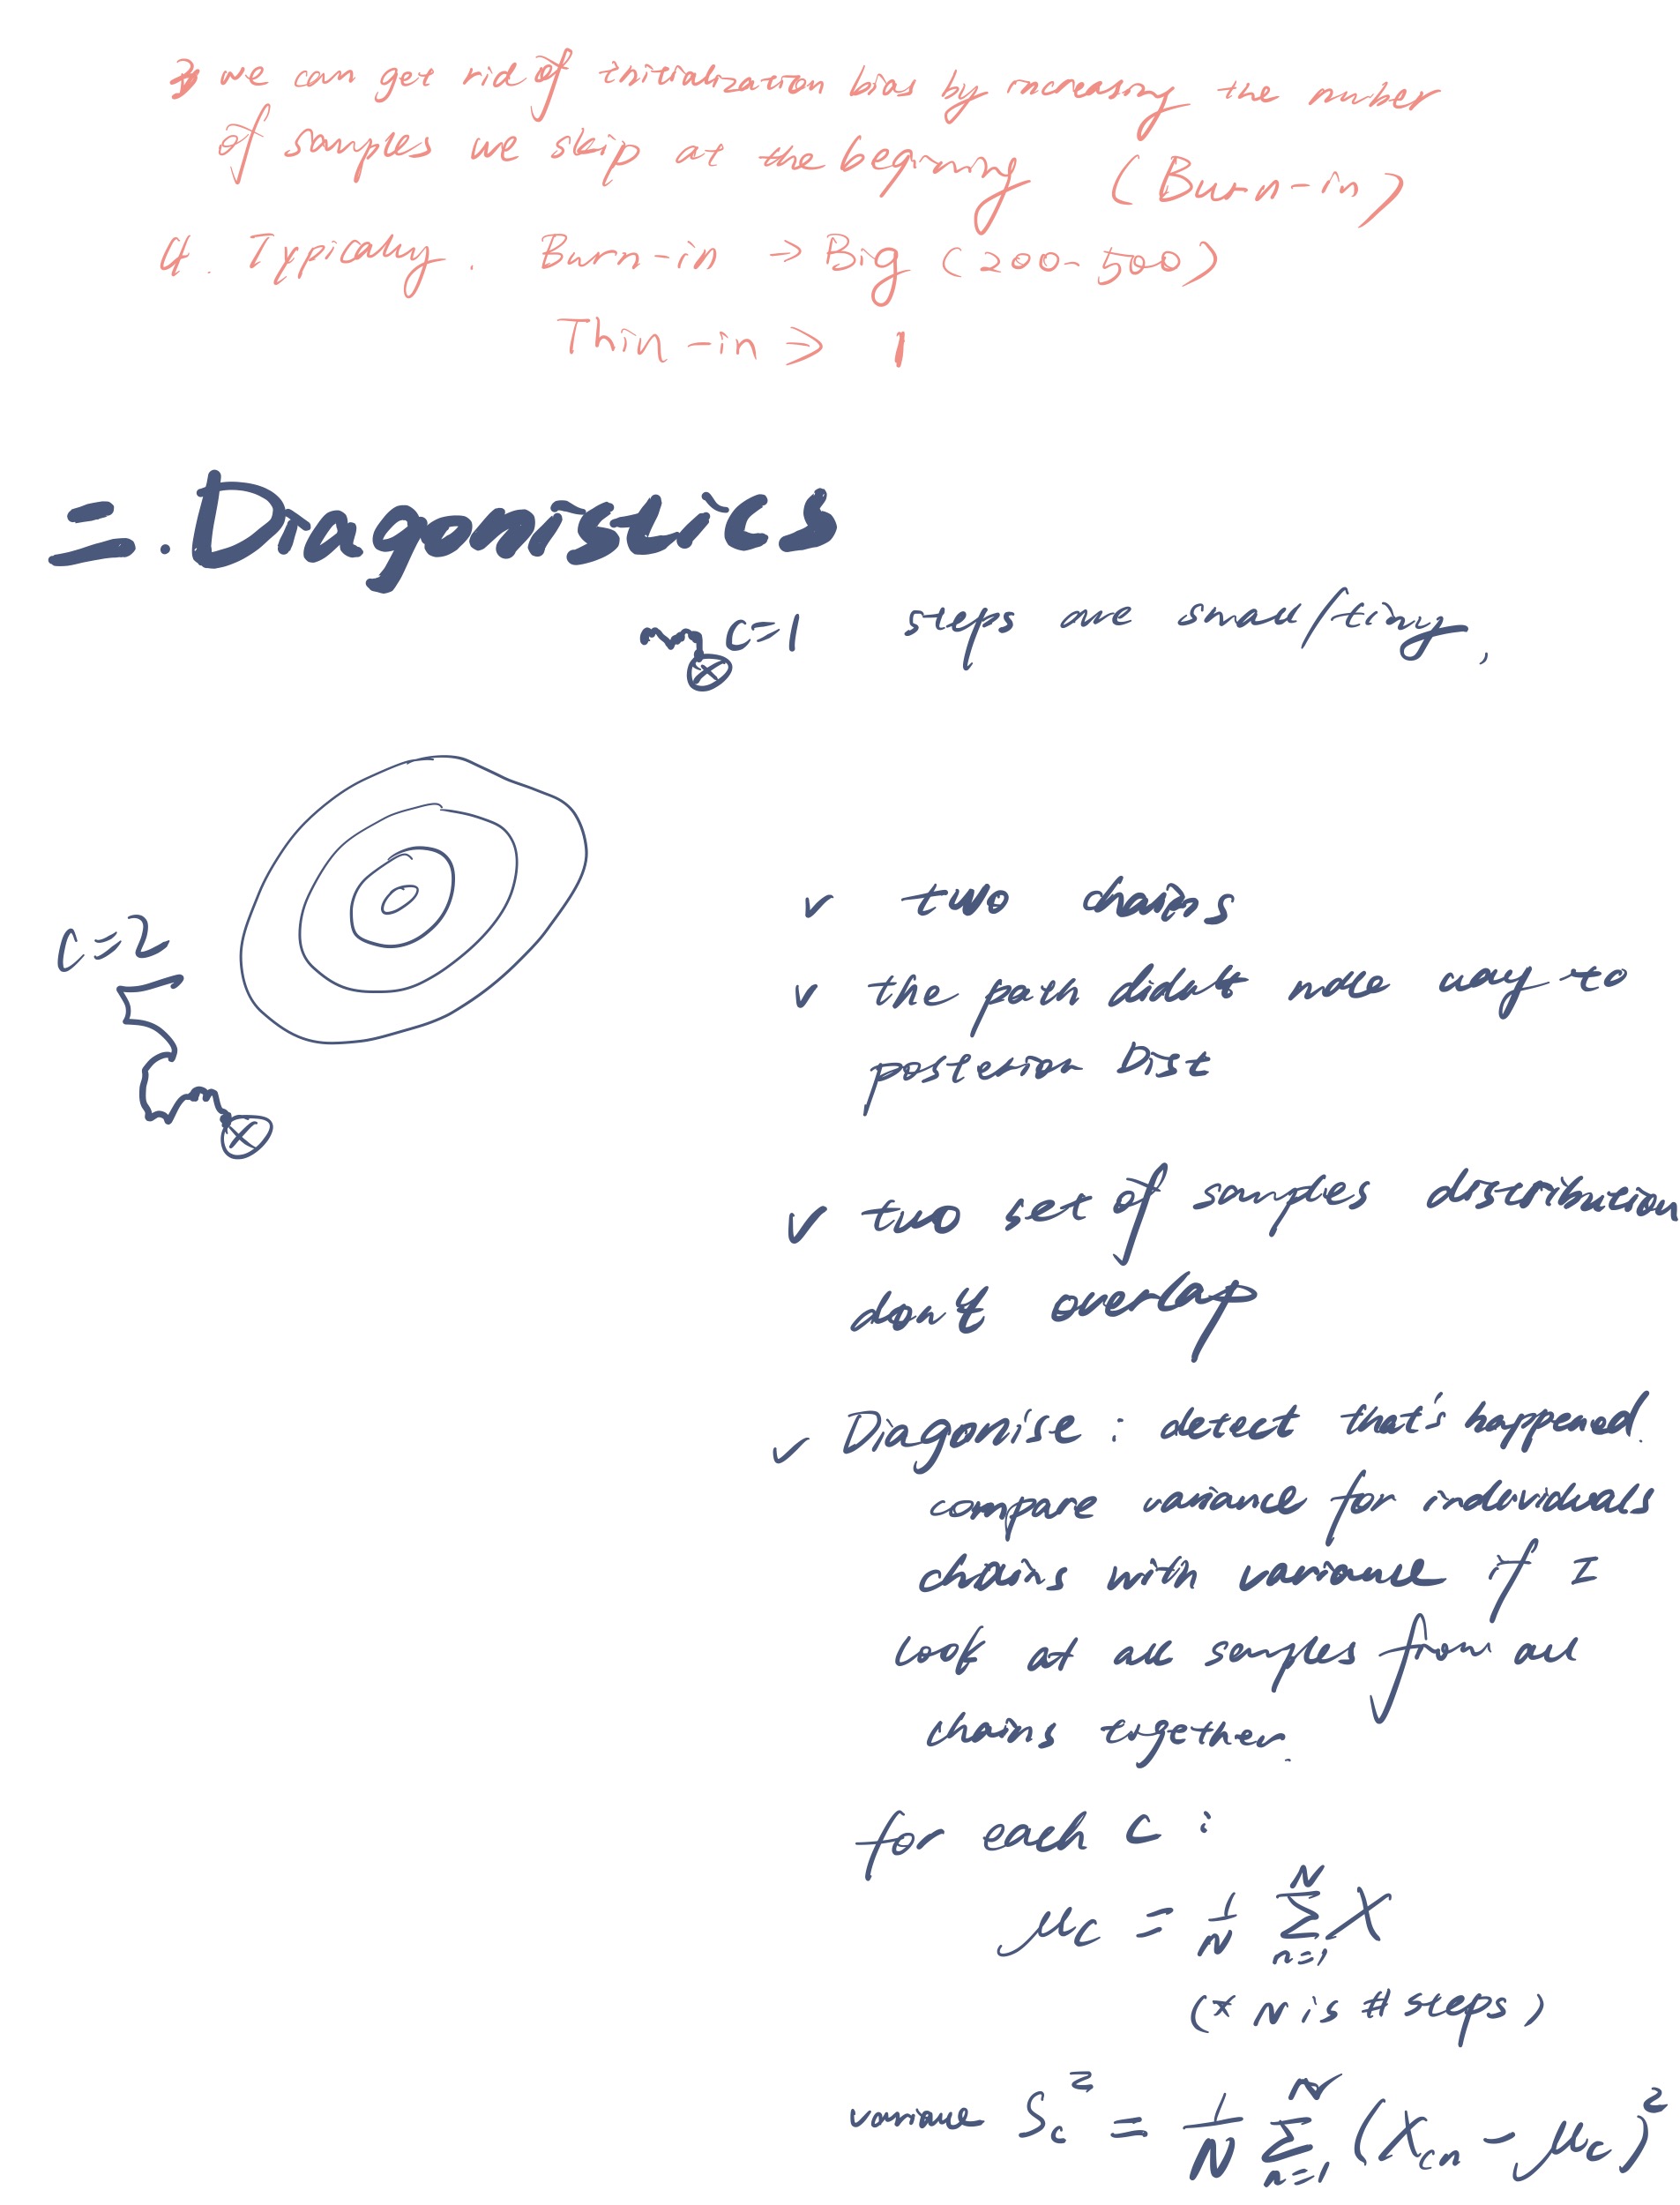 3 we can get rid of initialization bias by increasing the number
of samples we skip at the begining (Burn-in)
4. Typically. Burn-in → Big (200-500)
Thin-in ⇒ 1
二. Diagonistics
C=1 steps are small/tiny,
C=2
✓ two chains
✓ the path didn't make way to
posterior Dist
✓ two set of samples distribution
don't overlap
✓ Diagonise : detect that's happened.
compare variance for individuals
chains with variance if I
look at all samples from all
chains together.
for each c :
μc = 1/N Σ_{n=1}^{N} X
(* N is # steps)
variance Sc² = 1/N Σ_{n=1}^{N} (Xcn - μc)²